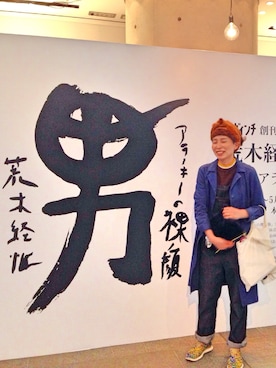 男
アラーキーの裸顔
荒木経惟
ヴィンチ 創刊
荒木経
アラ